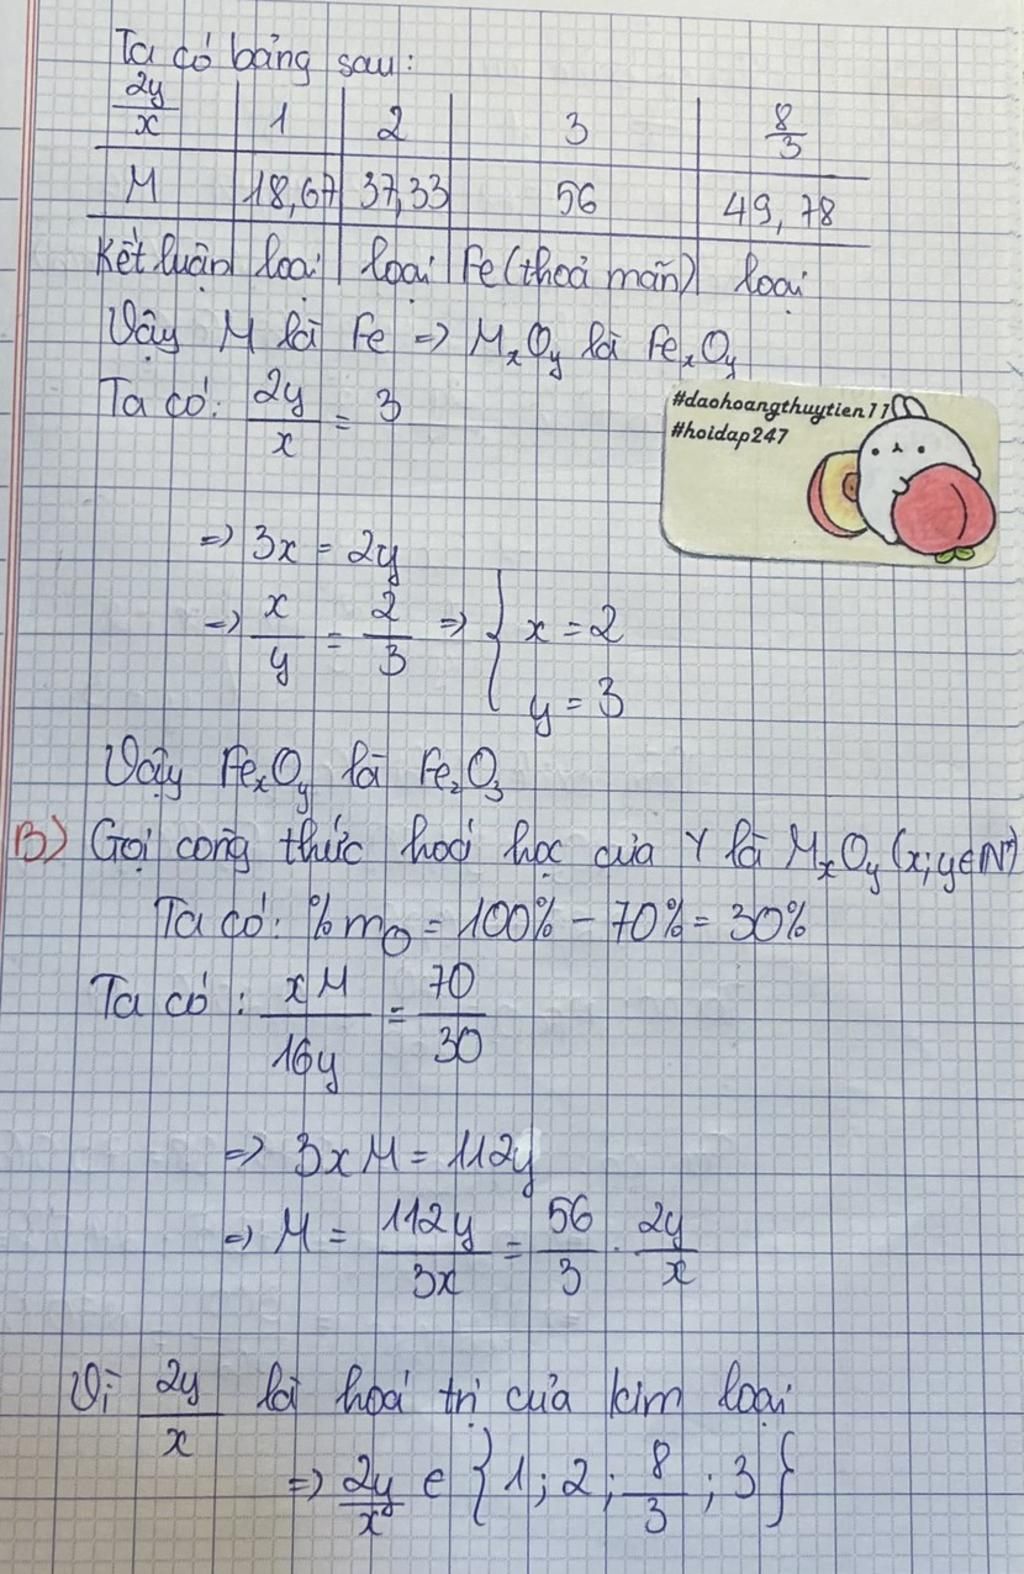 Ta có bảng sau:
2y/x | 1 | 2 | 3 | 8/3
M | 18,67 | 37,33 | 56 | 49,78
Kết luận | loại | loại | Fe (thoả mãn) | loại
Vậy M là Fe => MxOy là FexOy
Ta có: 2y/x = 3
#daohoangthuytien11
#hoidap247
=> 3x = 2y
=> x/y = 2/3 => { x = 2
y = 3
Vậy FexOy là Fe2O3
B) Gọi công thức hoá học của Y là MxOy (x;y∈N*)
Ta có: %mO = 100% - 70% = 30%
Ta có: xM/16y = 70/30
=> 3xM = 112y
=> M = 112y/3x = 56/3 . 2y/x
Vì 2y/x là hoá trị của kim loại
=> 2y/x ∈ {1; 2; 8/3; 3}